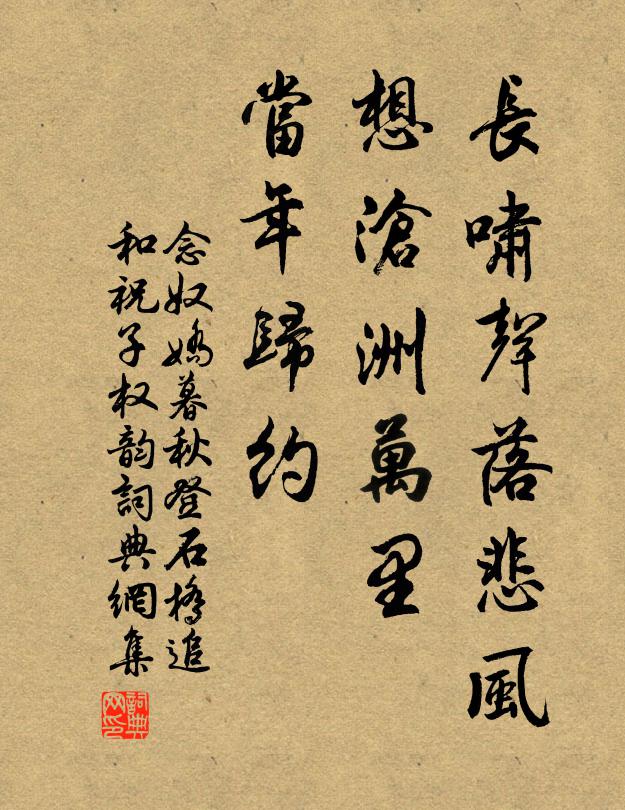 長嘯聲落悲風
想滄洲萬里
當年歸約
念奴嬌暮秋登石橋追
和祝子权韵詞典網集
詞典
网印